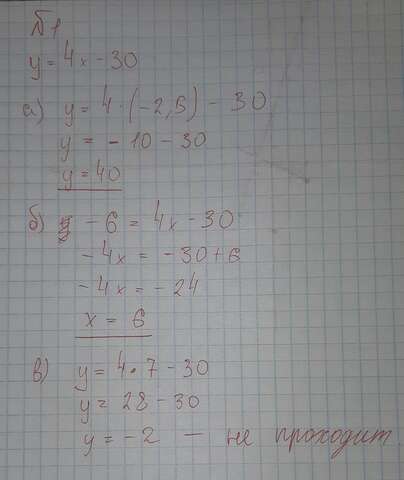 №1
y = 4x - 30
а) y = 4 · (-2,5) - 30
y = - 10 - 30
y = 40
б) - 6 = 4x - 30
- 4x = - 30 + 6
- 4x = - 24
x = 6
в) y = 4 · 7 - 30
y = 28 - 30
y = - 2 — не проходит